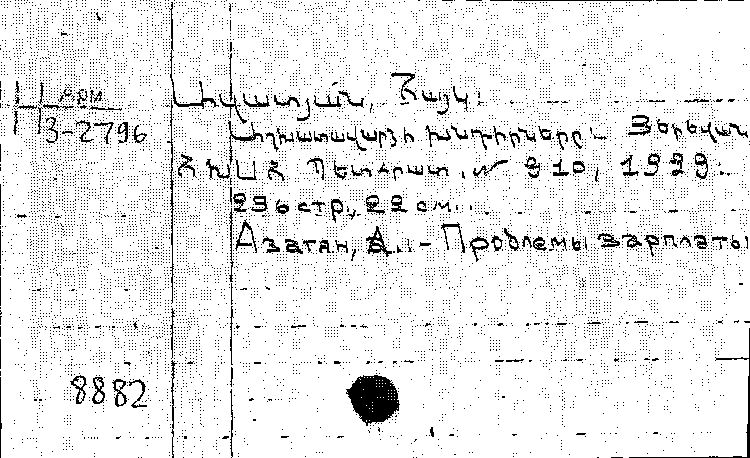 АРМ
3-2796
Ազատյան, Հայկ:
Աշխատավարձի խնդիրները: Յերեվան
ՀԽՍՀ Պետհրատ, № 810, 1929:
296 стр., 22 см.
Азатян, А. - Проблемы зарплаты
8882